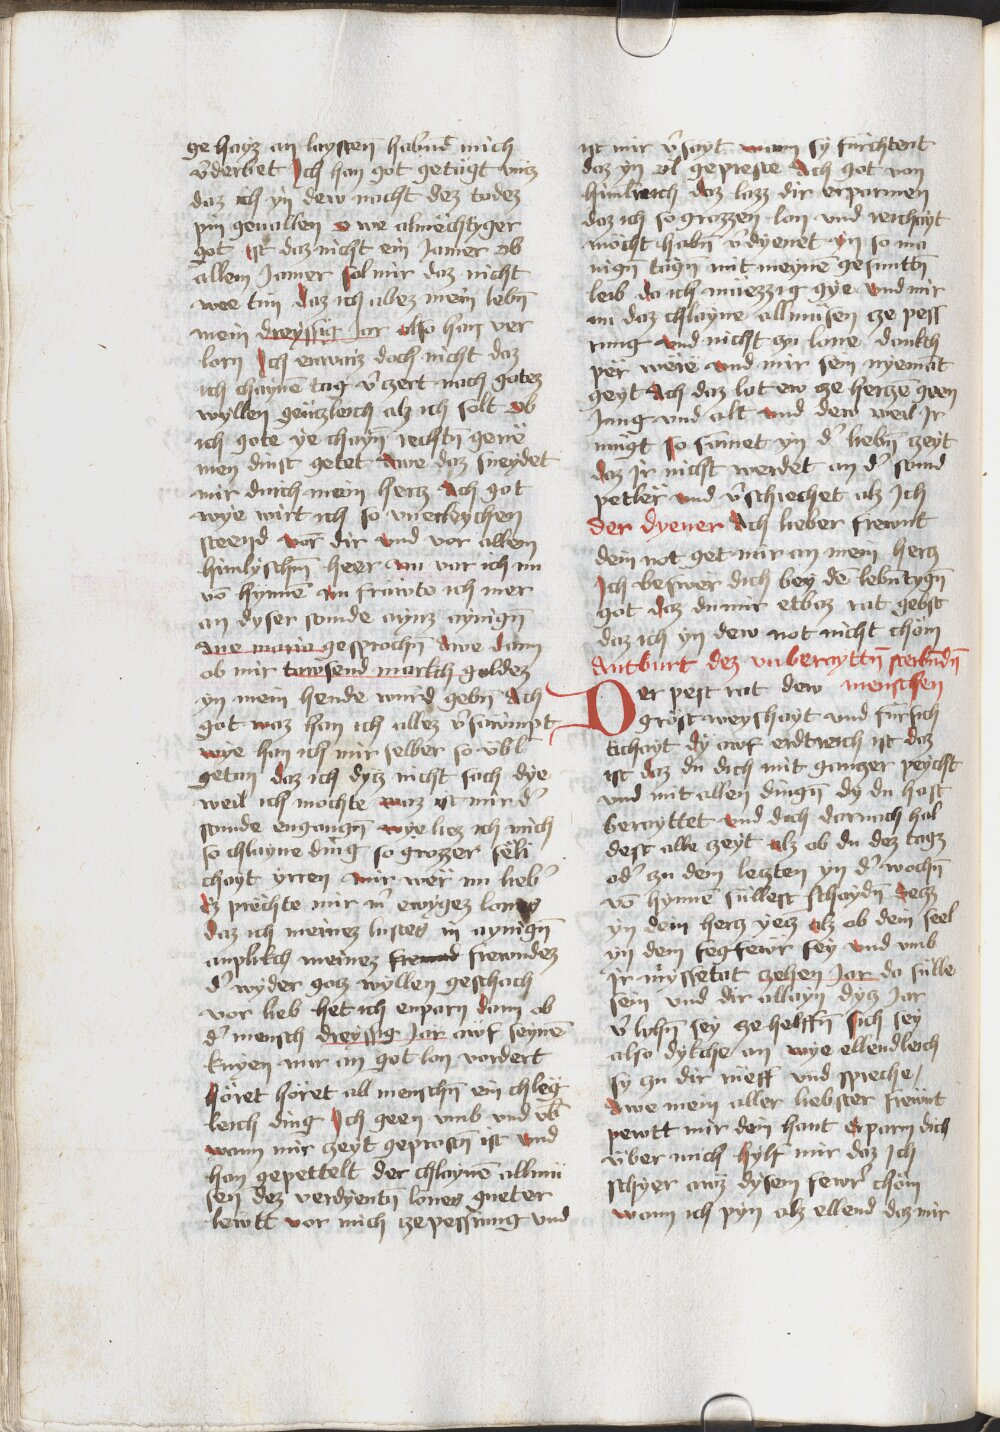 ge hayz an laysten habnd mich
v̄derbet Ich han got getügt vncz
daz ich yn dew nacht dez todez
pin geuallen o we almëchtyger
got ist daz nicht ein Jamer ob
allem Jamer sol mir daz nicht
wee tun daz ich allez mein lebn̄
mein dreyssig Jar also han ver
lorn Ich enwaiz doch nicht daz
ich chayne tag v̄czert nach gotez
wyllen gëuczleich alz ich solt ob
ich gote ye chayn̄ rechtn̄ genë
men dinst getet Awe daz sneydet
mir durch mein hercz Ach got
wye wirt ich so
steend vor dir vnd vor allem
himlyschn̄ heer nu var ich nu
vō hynnē nu frewte ich mer
an dyser stunde aynz aynign̄
aue maria gesprochn̄ Awe dann
ob mir tawsend markch goldez
yn mein hende wurd gebn̄ Ach
got waz han ich allez v̄sawmpt
wye han ich mir selber so v̄bl
getan daz ich dycz nicht sach dye
weil ich mochte waz ist mir d'
stunde engangn̄ wye liez ich mich
so chlayne ding so grozzer sëli
chayt yrren mir wër nu lieb'
Ez prëchte mir m' ewygez lones
daz ich meinez lustes in aynign̄
anplikch meinez frewndez
d' wyder gotz wyllen geschach
vor lieb het ich enparn dann ob
d' mensch dreyssig Jar awf seynē
knyen nur an got lon vordert
höret höret all menschn̄ ein chleg
leich ding Ich geen vmb vnd v̄b
wann mir czeyt geprosten ist vnd
han gepettelt der chlaynē allmu
sen dez verdyentn̄ lones gueter
lewtt vor mich cze pessrung vnd
ist mir v̄sayt wann sy fürchtent
daz yn ol gepreste Ach got von
himlreich daz lazz dir erparmen
daz ich so grozzen lon vnd reichayt
möcht habn̄ v̄dyenet yn so ma
nign̄ tayn̄ mit meynē gesuntn̄
leib da ich müezzig gye vnd mir
nu daz chlayne allmüsen cze pess
rung vnd nicht zu lone dankch
për wëre vnd mir sein nyemāt
geyt Ach daz lat ew cze herczē geen
Jung vnd alt vnd dew weil Ir
mügt so sāmet yn d' liebn̄ czeyt
daz Ir nicht werdet an d' stund
petlër vnd v̄schiechet alz Ich
der dyener Ach lieber frewnt
dein not get mir an mein hercz
Ich beswer dich bey dē lebntygn̄
got daz du mir etbaz rat gebst
daz ich yn dew not nicht chöm
Antburt dez vnberayttn̄ sterbndn̄
menschen
Der pest rat dew
gröst weyshayt vnd fürsich
tichayt dy awf erdtreich ist daz
ist daz du dich mit ganczer peycht
vnd mit allen dingn̄ dy du hast
berayttet vnd dich darnach hal
dest alle czeyt alz ob du dez tagz
od' zu dem leczten yn d' wochn̄
vō hynnē sullest schaydn̄ secz
yn dein hercz yecz alz ob dein seel
yn dem fegfewr sey vnd vmb
Ir myssetat czehen Jar da sülle
sein vnd dir allayn dycz Jar
v̄lihn̄ sey cze helffn̄ sich sey
also dykche an wye ellendleich
sy zu dir rüeff vnd spreche/
Awe mein aller liebster frewnt
pewtt mir dein hant erparm dich
über mich hylf mir daz Ich
schyer awz dysem fewr' chöm
wann ich pyn alz ellend daz mir